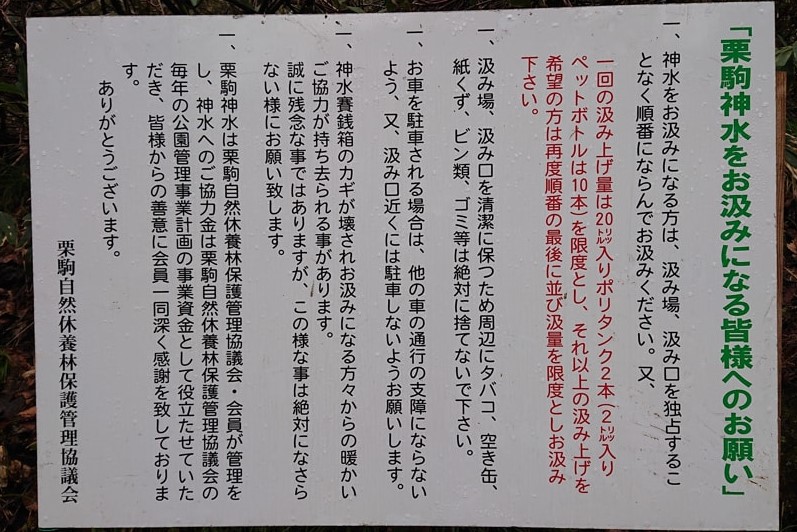 「栗駒神水をお汲みになる皆様へのお願い」
一、神水をお汲みになる方は、汲み場、汲み口を独占するこ
となく順番にならんでお汲みください。又、
一回の汲み上げ量は20㍑入りポリタンク2本(2㍑入り
ペットボトルは10本)を限度とし、それ以上の汲み上げを
希望の方は再度順番の最後に並び汲量を限度としお汲み
下さい。
一、汲み場、汲み口を清潔に保つため周辺にタバコ、空き缶、
紙くず、ビン類、ゴミ等は絶対に捨てないで下さい。
一、お車を駐車される場合は、他の車の通行の支障にならない
よう、又、汲み口近くには駐車しないようお願いします。
一、神水賽銭箱のカギが壊されお汲みになる方々からの暖かい
ご協力が持ち去られる事があります。
誠に残念な事ではありますが、この様な事は絶対になさら
ない様にお願い致します。
一、栗駒神水は栗駒自然休養林保護管理協議会・会員が管理を
し、神水へのご協力金は栗駒自然休養林保護管理協議会の
毎年の公園管理事業計画の事業資金として役立たせていた
だき、皆様からの善意に会員一同深く感謝を致しておりま
す。
ありがとうございます。
栗駒自然休養林保護管理協議会